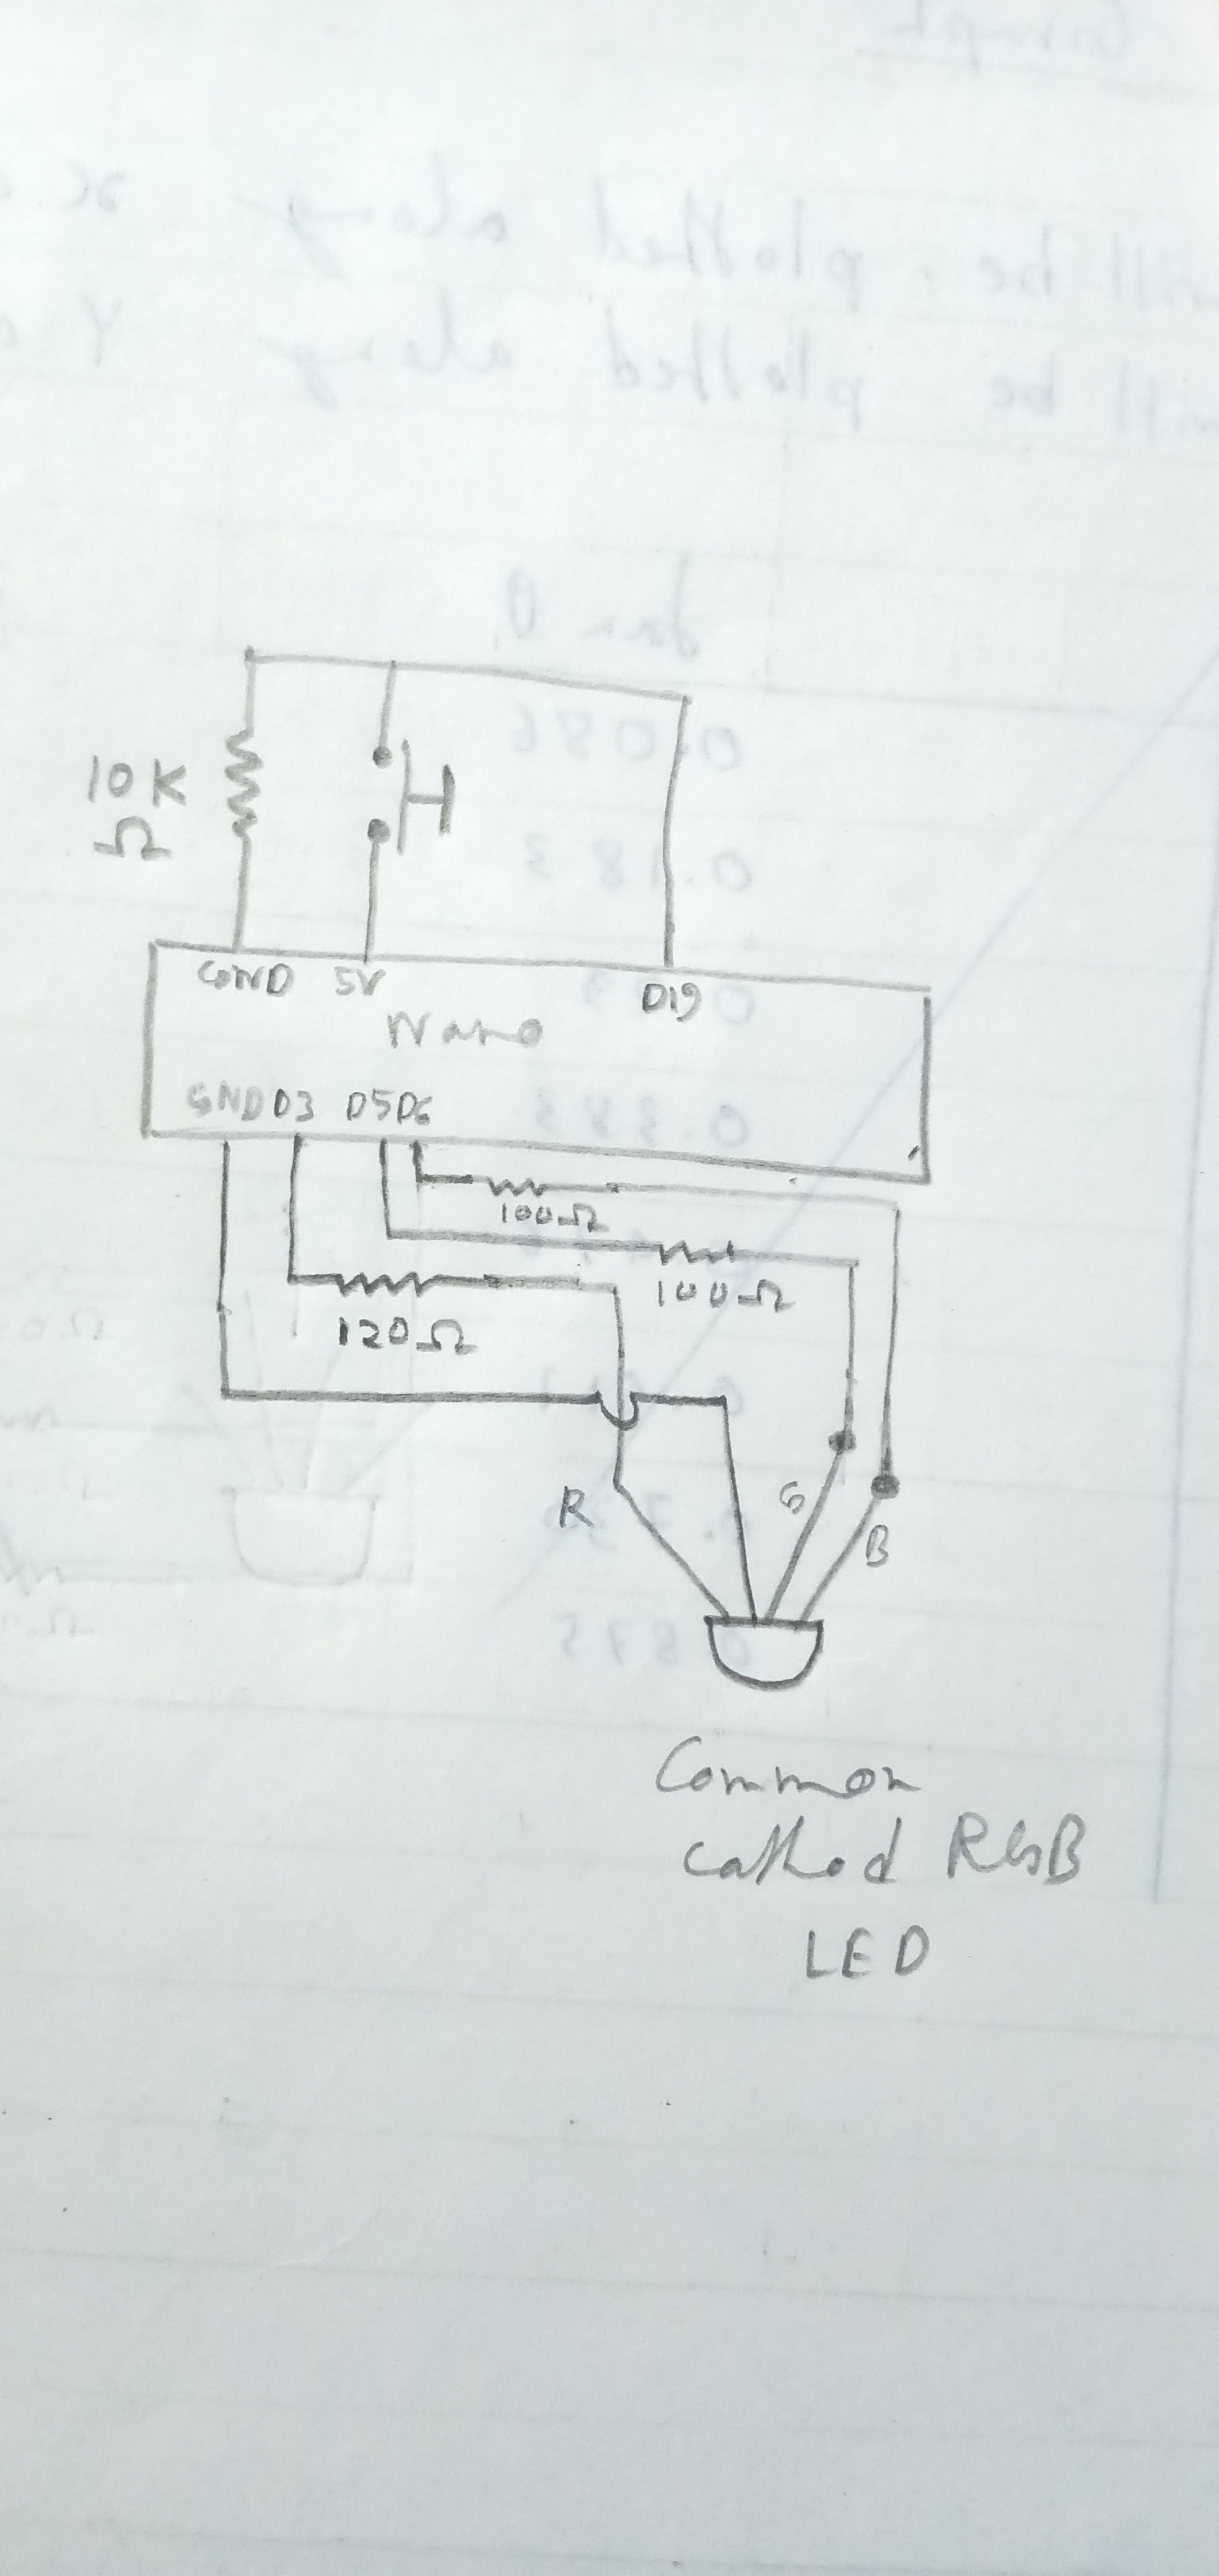 10 K
Ω
GND 5V D19
Nano
GND D3 D5 D6
100Ω
100Ω
120Ω
R G B
Common
cathod RGB
LED